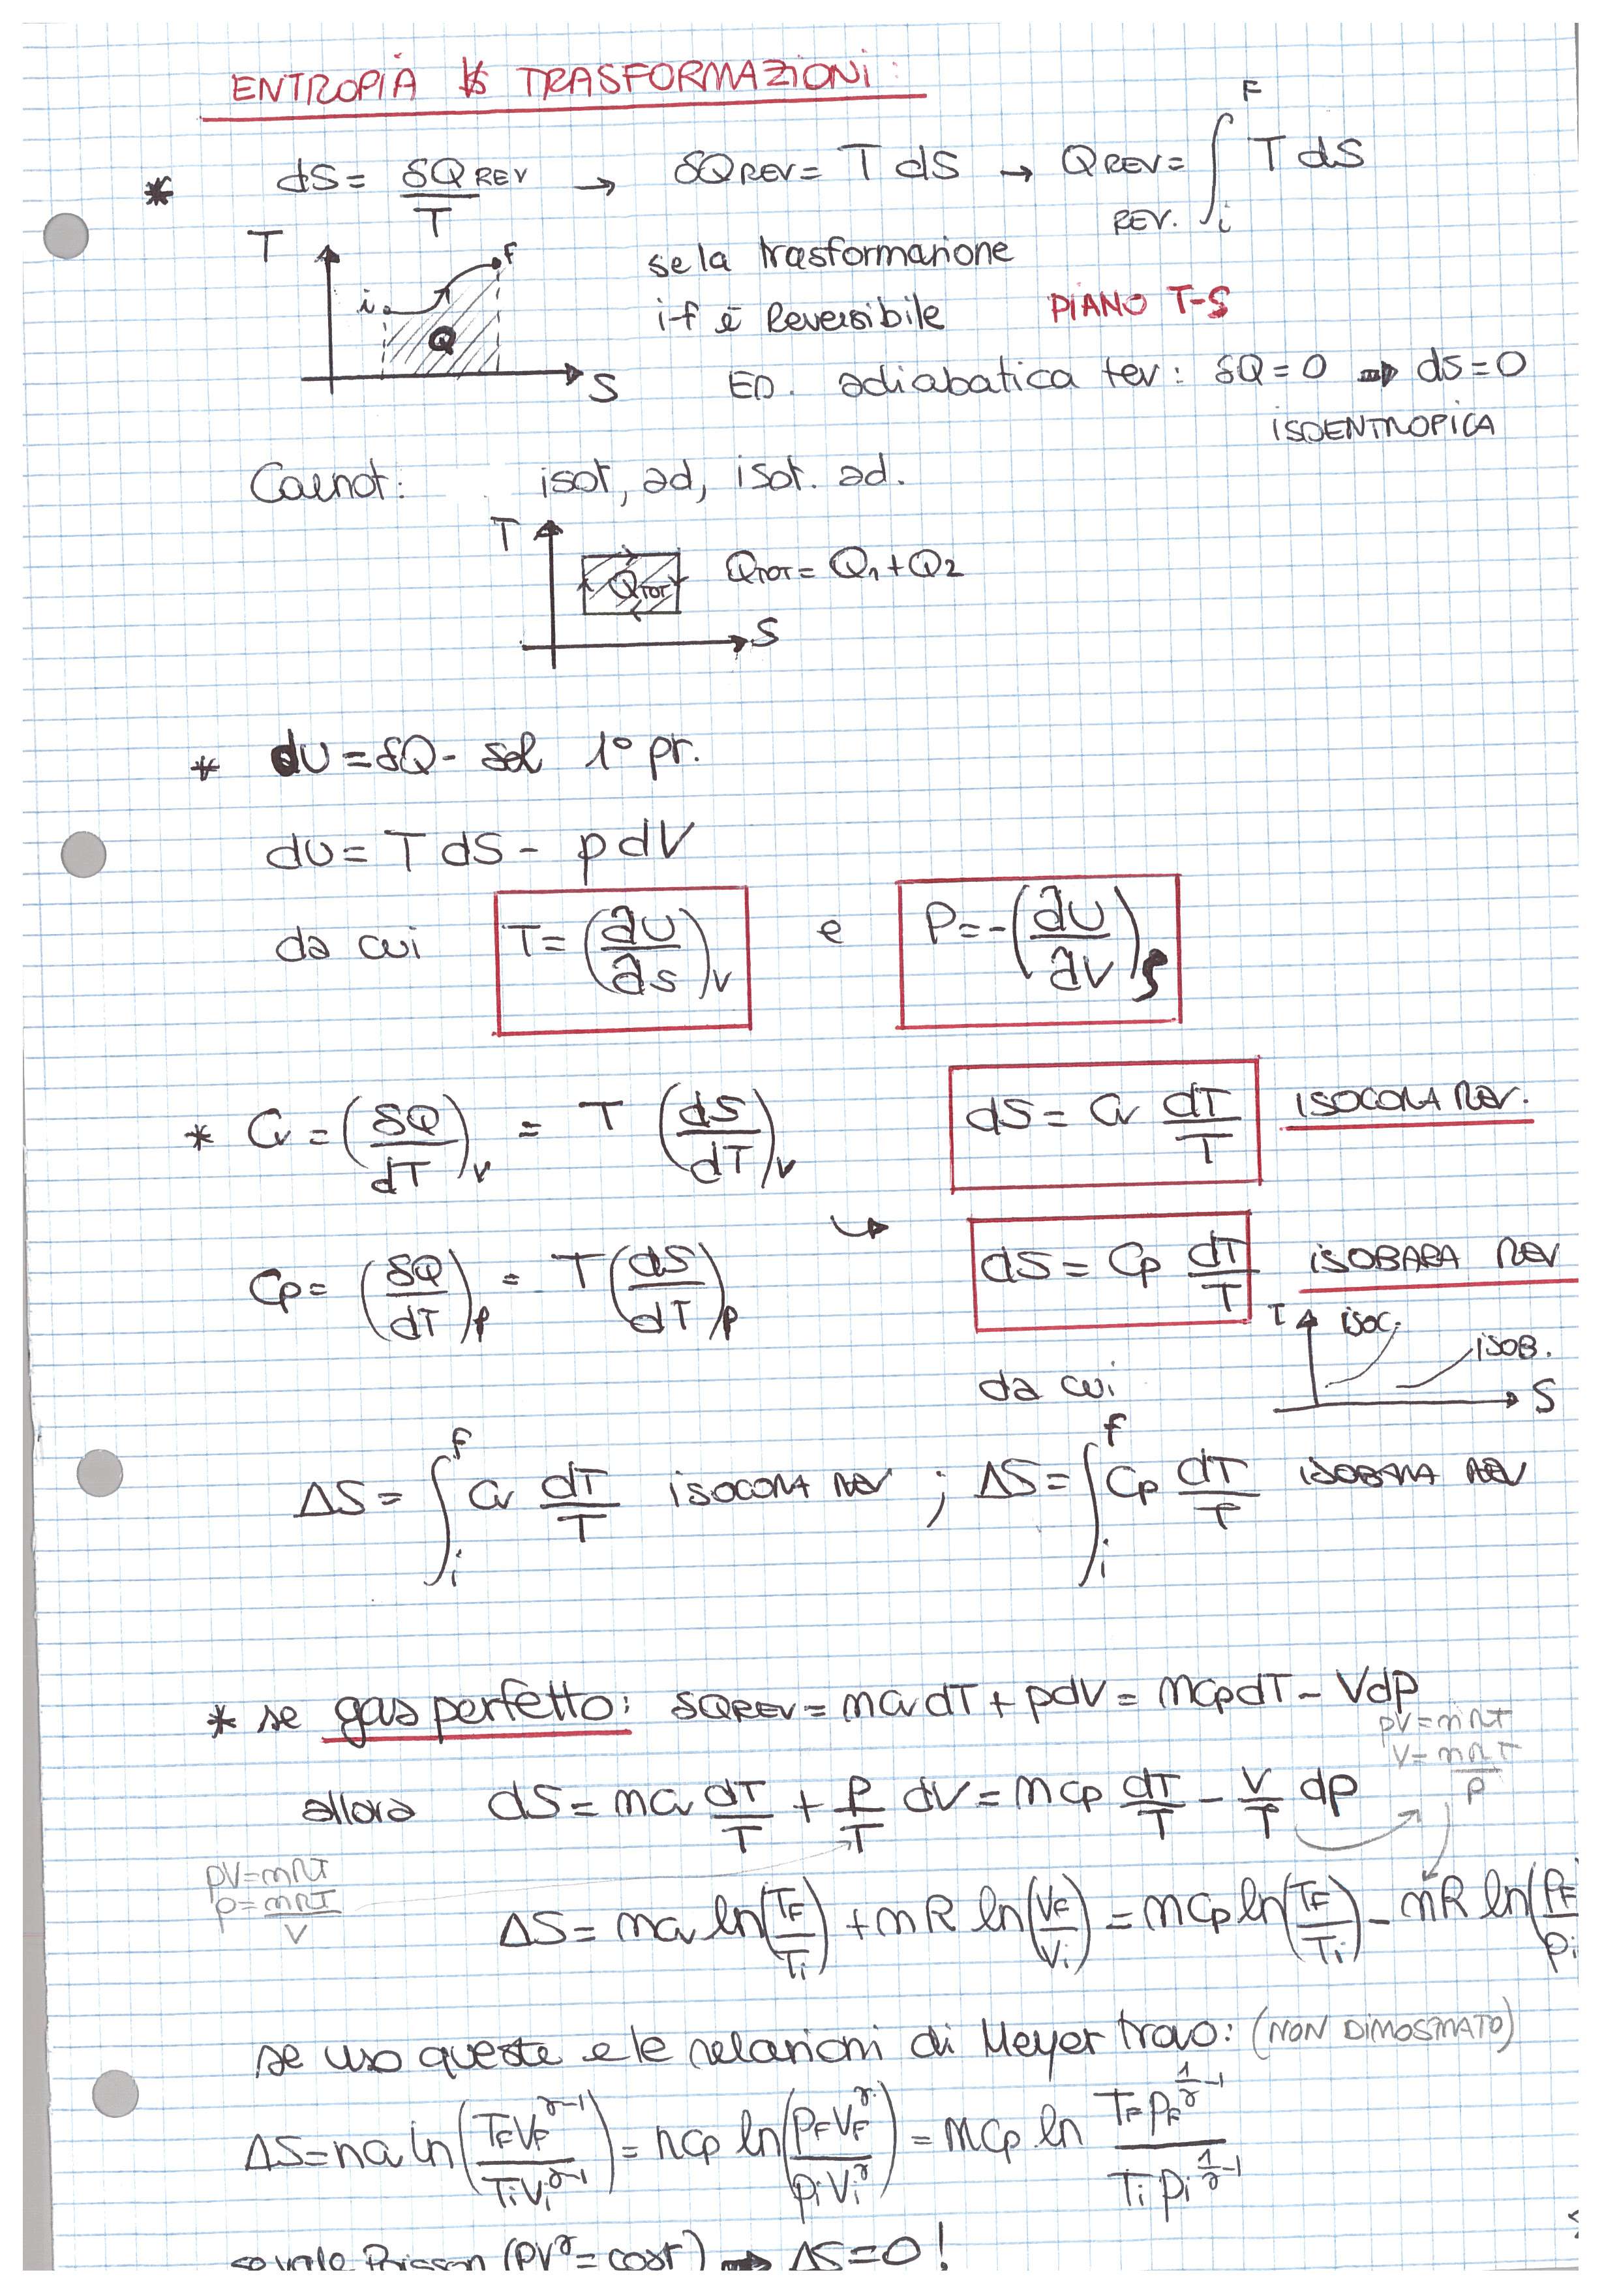 ENTROPIA VS TRASFORMAZIONI:
* dS = δQREV / T → δQREV = T dS → QREV = ∫ᵢF T dS
REV.
T i f Q S
se la trasformazione
i-f è reversibile PIANO T-S
ES. adiabatica rev: δQ = 0 ⇒ dS = 0
ISOENTROPICA
Carnot: isot, ad, isot. ad.
T QTOT S QTOT = Q₁ + Q₂
* dU = δQ - δL 1° pr.
dU = T dS - p dV
da cui T = (∂U/∂S)V e P = -(∂U/∂V)S
* Cv = (δQ/dT)V = T (dS/dT)V dS = Cv dT/T ISOCORA REV.
Cp = (δQ/dT)p = T (dS/dT)p ↪ dS = Cp dT/T ISOBARA REV
T ISOC. ISOB. S
da cui
ΔS = ∫ᵢF Cv dT/T ISOCORA REV ; ΔS = ∫ᵢf Cp dT/T ISOBARA REV
* se gas perfetto: δQREV = ncv dT + pdV = ncp dT - Vdp
pV = nRT
V = nRT/p
allora dS = ncv dT/T + P/T dV = ncp dT/T - V/T dp
pV = nRT
p = nRT/V
ΔS = ncv ln(TF/Ti) + nR ln(VF/Vi) = ncp ln(TF/Ti) - nR ln(PF/pi
se uso queste e le relazioni di Meyer trovo: (NON DIMOSTRATO)
ΔS = ncv ln(TFVF^γ-1 / TiVi^γ-1) = ncp ln(PFVF^γ / piVi^γ) = ncp ln TF PF^(1/γ-1) / Ti pi^(1/γ-1)
se vale Poisson (PV^γ = cost) ⇒ ΔS = 0!